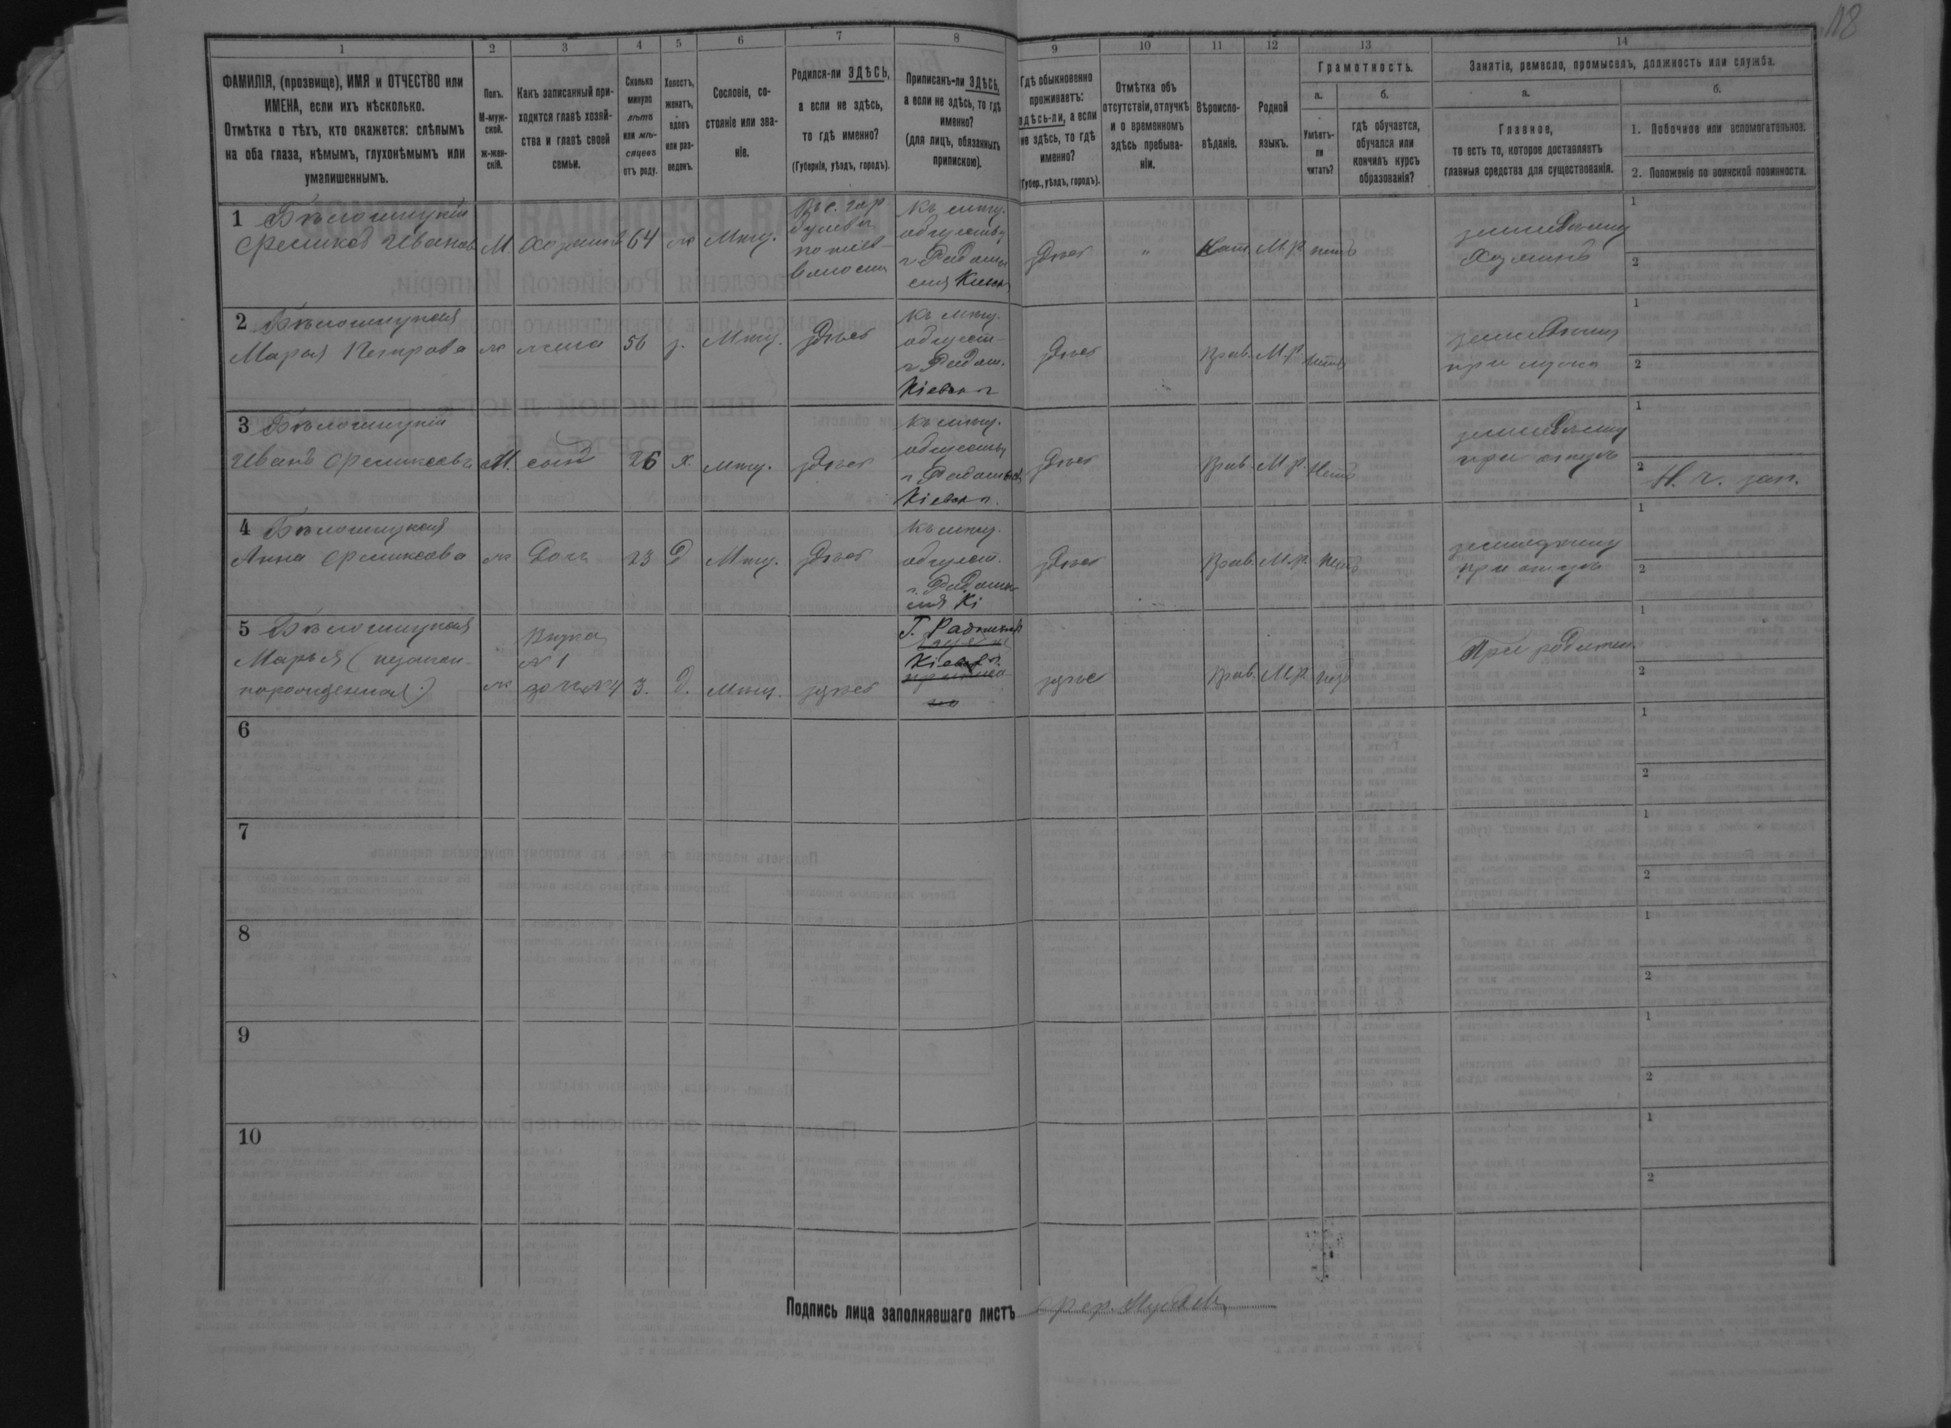 118
1 2 3 4 5 6 7 8 9 10 11 12 13 14
ФАМИЛІЯ, (прозвище), ИМЯ и ОТЧЕСТВО или
ИМЕНА, если ихъ нѣсколько.
Отмѣтка о тѣхъ, кто окажется: слѣпымъ
на оба глаза, нѣмымъ, глухонѣмымъ или
умалишеннымъ.
Полъ.
М-муж-
ской.
ж-жен-
скій.
Какъ записанный при-
ходится главѣ хозяй-
ства и главѣ своей
семьи.
Сколько
минуло
лѣтъ
или мѣ-
сяцевъ
отъ роду.
Холостъ,
женатъ,
вдовъ
или раз-
веденъ.
Сословіе, со-
стояніе или зва-
ніе.
Родился-ли ЗДѢСЬ,
а если не здѣсь,
то гдѣ именно?
(Губернія, уѣздъ, городъ).
Приписанъ-ли ЗДѢСЬ,
а если не здѣсь, то гдѣ
именно?
(для лицъ, обязанныхъ
припискою).
Гдѣ обыкновенно
проживаетъ:
здѣсь-ли, а если
не здѣсь, то гдѣ
именно?
(Губер., уѣздъ, городъ).
Отмѣтка объ
отсутствіи, отлучкѣ
и о временномъ
здѣсь пребыва-
ніи.
Вѣроиспо-
вѣданіе.
Родной
языкъ.
Грамотность.
а.
Умѣетъ-
ли
читать?
б.
гдѣ обучается,
обучался или
кончилъ курсъ
образованія?
Занятіе, ремесло, промыселъ, должность или служба.
а.
Главное,
то есть то, которое доставляетъ
главныя средства для существованія.
б.
1. Побочное или вспомогательное.
2. Положеніе по воинской повинности.
1 Бѣлошицкій
Феликсъ Ивановъ М. хозяинъ 64 ж Мѣщ.
Къ мѣщ.
обществу
г. Радомы
здѣсь " Кат. М.р. нѣтъ
хозяинъ
1
2
2 Бѣлошицкая
Марья Петрова ж жена 56 з. Мѣщ. здѣсь
Къ мѣщ.
общест
г. Радом.
Кіевск г
здѣсь Прав. М.р. нѣтъ
при мужѣ
1
2
3 Бѣлошицкій
Иванъ Феликсовъ М. сынъ 26 х. мѣщ. здѣсь
Къ мѣщ.
г. Радомысл
Кіевск г.
здѣсь Прав. М.р. Нѣтъ
при отцѣ
1
2 Н. ч. зап.
4 Бѣлошицкая
Анна Феликсова ж Дочь 23 д Мѣщ. здѣсь
Къ мѣщ.
общест.
г. Радомы
здѣсь Прав. М.р. нѣтъ
при отцѣ
1
2
5 Бѣлошицкая
Марья (незакон-
норожденная) ж
Внучка
№ 1
дочь №4 3. д. мѣщ. здѣсь
Г. Радомысль
Кіевск г.
здѣсь Прав. М.р. нѣтъ
При
1
2
6
1
2
7
1
2
8
1
2
9
1
2
10
1
2
Подпись лица заполнявшаго листъ